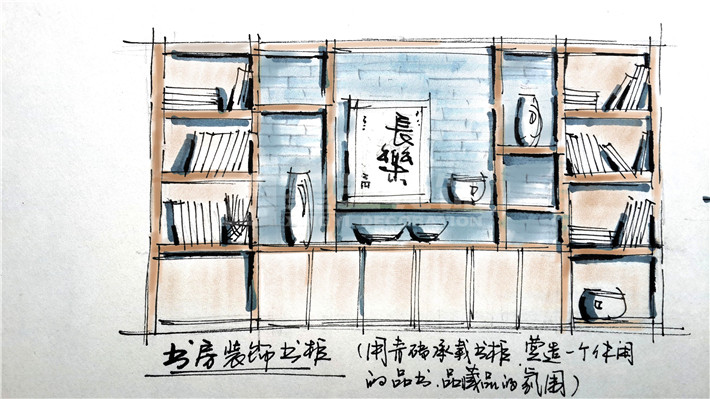 長樂
书房装饰书柜
(用青砖承载书柜 营造一个休闲
的品书、品藏品的氛围)